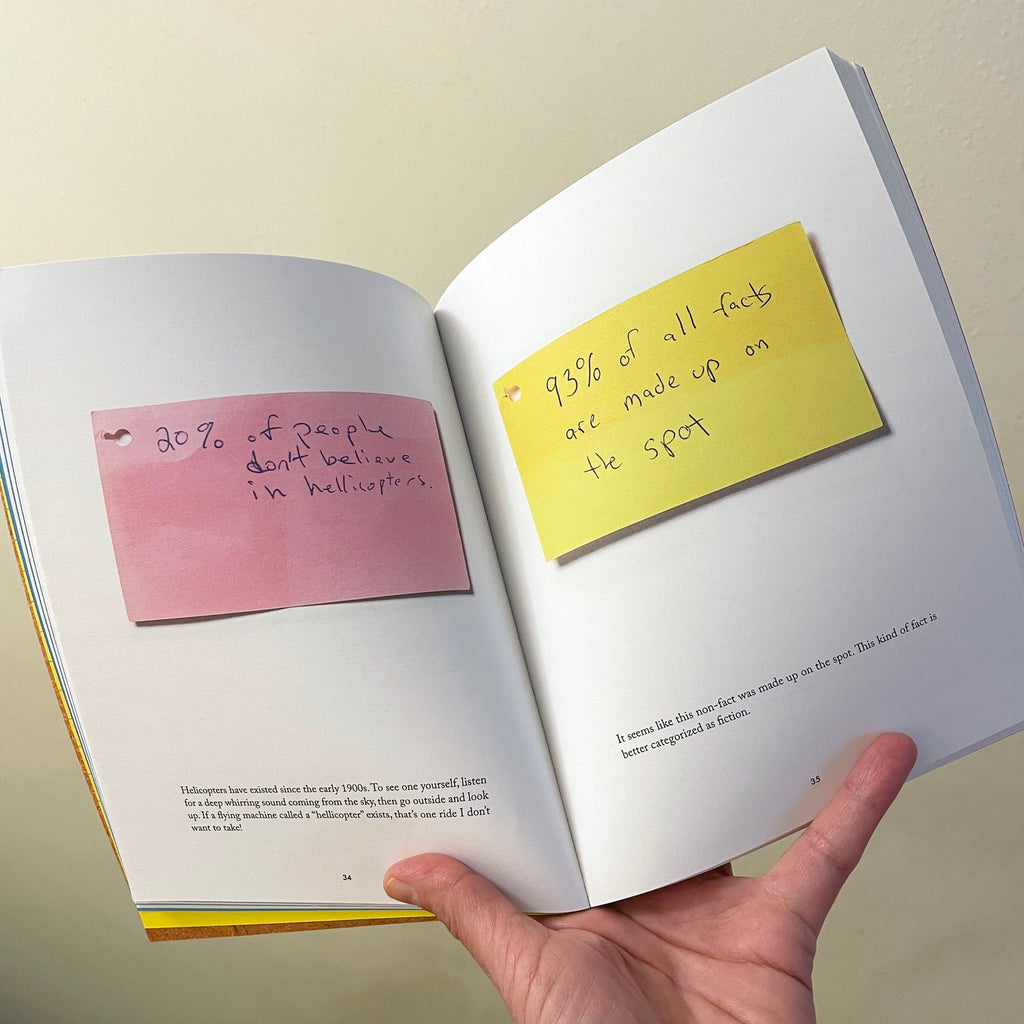 20% of people
don't believe
in hellicopters.
Helicopters have existed since the early 1900s. To see one yourself, listen
for a deep whirring sound coming from the sky, then go outside and look
up. If a flying machine called a “hellicopter” exists, that’s one ride I don’t
want to take!
34
93% of all facts
are made up on
the spot
It seems like this non-fact was made up on the spot. This kind of fact is
better categorized as fiction.
35